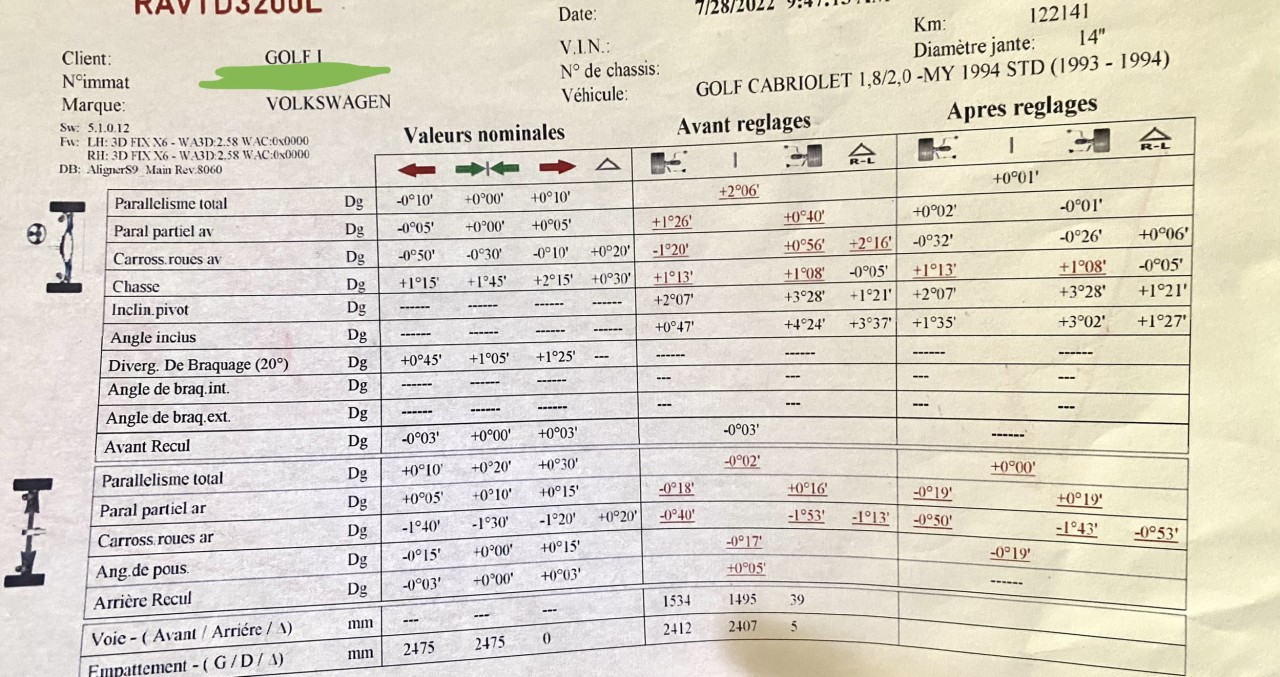 RAVTD3200L
Date: 7/28/2022
Km: 122141
Client: GOLF I
V.I.N.:
Diamètre jante: 14"
N°immat
N° de chassis:
Marque: VOLKSWAGEN
Véhicule: GOLF CABRIOLET 1,8/2,0 -MY 1994 STD (1993 - 1994)
Sw: 5.1.0.12
Fw: LH: 3D FIX X6 - WA3D:2.58 WAC:0x0000
RH: 3D FIX X6 - WA3D:2.58 WAC:0x0000
DB: AlignerS9_Main Rev:8060
Valeurs nominales Avant reglages Apres reglages
R-L R-L
Parallelisme total Dg -0°10' +0°00' +0°10' +2°06' +0°01'
Paral partiel av Dg -0°05' +0°00' +0°05' +1°26' +0°40' +0°02' -0°01'
Carross.roues av Dg -0°50' -0°30' -0°10' +0°20' -1°20' +0°56' +2°16' -0°32' -0°26' +0°06'
Chasse Dg +1°15' +1°45' +2°15' +0°30' +1°13' +1°08' -0°05' +1°13' +1°08' -0°05'
Inclin.pivot Dg ------ ------ ------ ------ +2°07' +3°28' +1°21' +2°07' +3°28' +1°21'
Angle inclus Dg ------ ------ ------ ------ +0°47' +4°24' +3°37' +1°35' +3°02' +1°27'
Diverg. De Braquage (20°) Dg +0°45' +1°05' +1°25' --- ------ ------ ------ ------
Angle de braq.int. Dg ------ ------ ------ --- --- --- ---
Angle de braq.ext. Dg ------ ------ ------ --- --- --- ---
Avant Recul Dg -0°03' +0°00' +0°03' -0°03' ------
Parallelisme total Dg +0°10' +0°20' +0°30' -0°02' +0°00'
Paral partiel ar Dg +0°05' +0°10' +0°15' -0°18' +0°16' -0°19' +0°19'
Carross.roues ar Dg -1°40' -1°30' -1°20' +0°20' -0°40' -1°53' -1°13' -0°50' -1°43' -0°53'
Ang.de pous. Dg -0°15' +0°00' +0°15' -0°17' -0°19'
Arrière Recul Dg -0°03' +0°00' +0°03' +0°05' ------
Voie - ( Avant / Arriére / Δ) mm --- --- --- 1534 1495 39
Empattement - ( G / D / Δ) mm 2475 2475 0 2412 2407 5